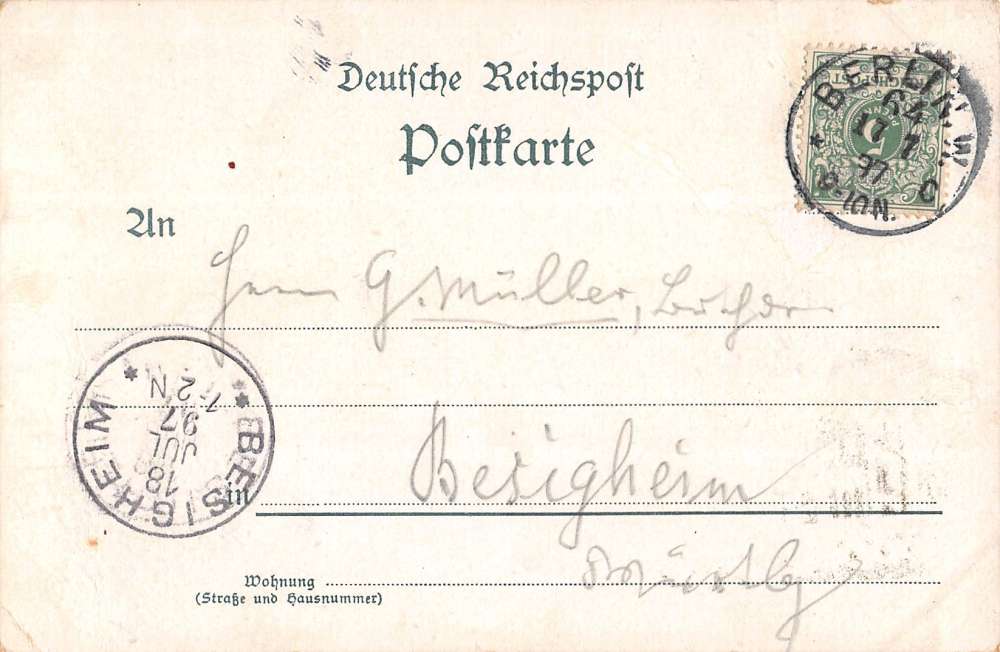 Deutsche Reichspost
Postkarte
BERLIN, W.
64
17 7
97
9-10N. c
5
An
Herrn G. Müller,
BESIGHEIM
18
JUL
97
1-2N
Besigheim
in
Württbg
Wohnung
(Straße und Hausnummer)